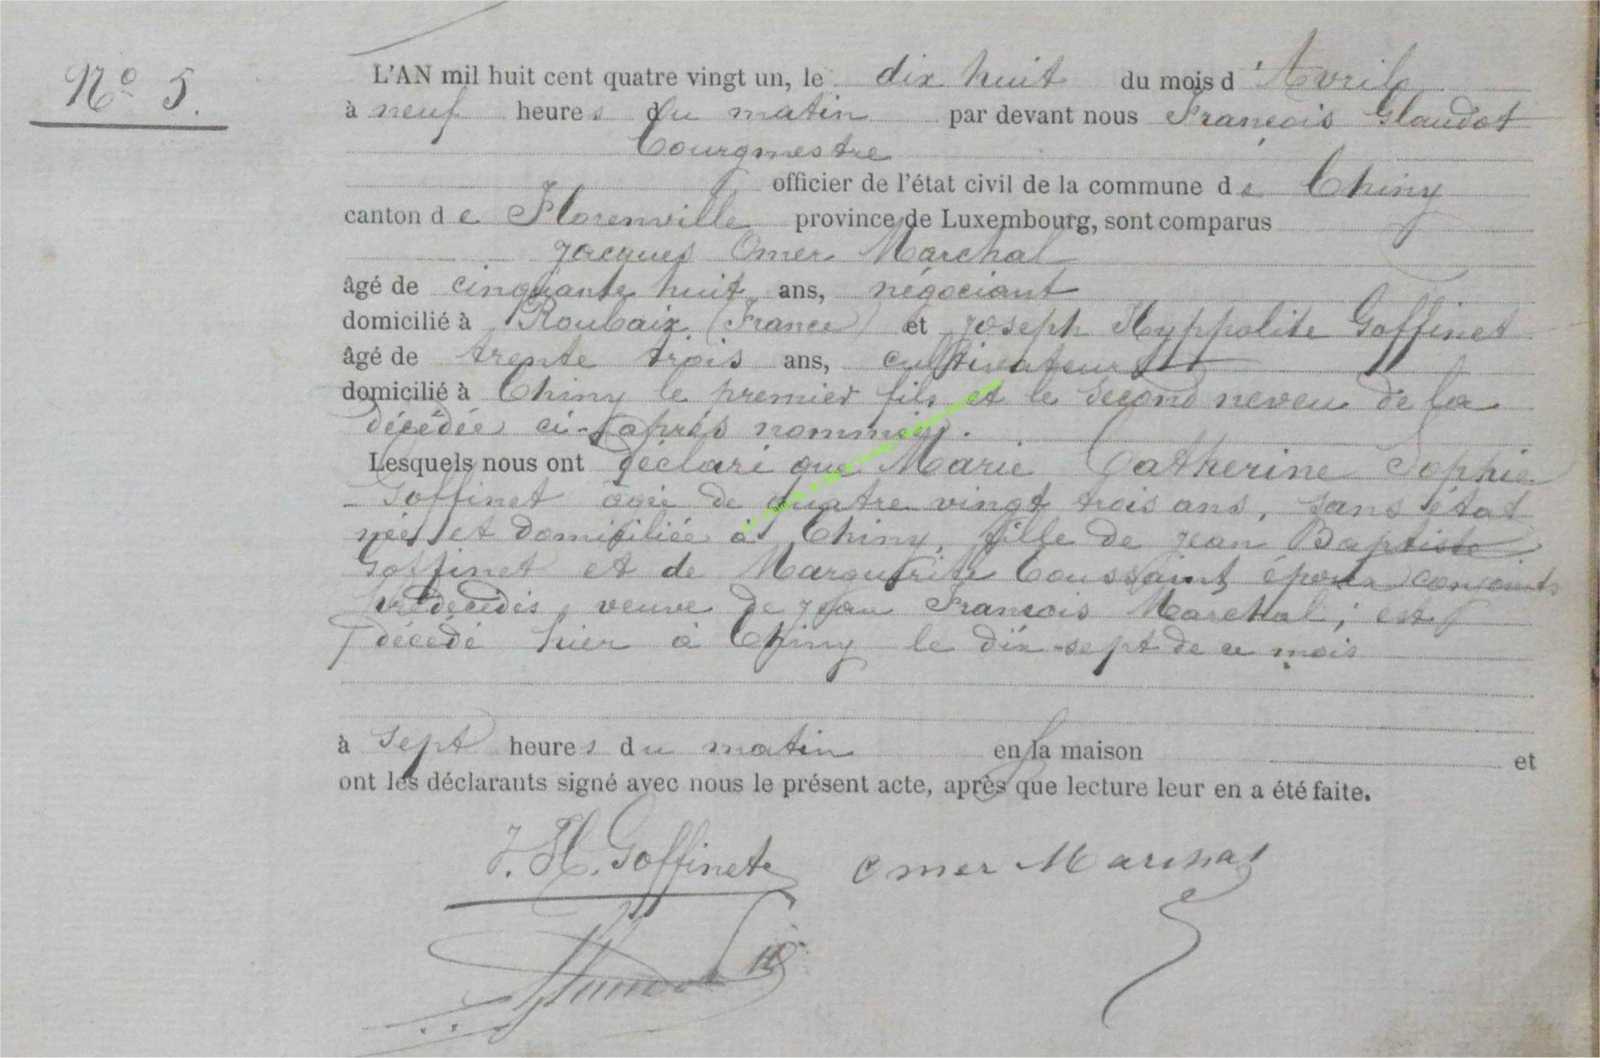 N° 5.
L'AN mil huit cent quatre vingt un, le dix huit du mois d'Avril
à neuf heures du matin par devant nous François Glaudot
Bourgmestre
officier de l'état civil de la commune de Chiny
canton de Florenville province de Luxembourg, sont comparus
Jacques Omer Marchal
âgé de cinquante huit ans, négociant
domicilié à Roubaix (France) et Joseph Hyppolite Goffinet
âgé de trente trois ans, cultivateur
domicilié à Chiny le premier fils et le second neveu de la
décédée ci-après nommée.
Lesquels nous ont déclaré que Marie Catherine Sophie
Goffinet âgée de quatre vingt trois ans, sans état
née et domiciliée à Chiny, fille de Jean Baptiste
Goffinet et de Marguerite Toussaint, époux conjoints
prédécédés, veuve de Jean François Marchal; est
décédé hier à Chiny le dix-sept de ce mois
à sept heures du matin en la maison et
ont les déclarants signé avec nous le présent acte, après que lecture leur en a été faite.
J. H. Goffinet Omer Marchal